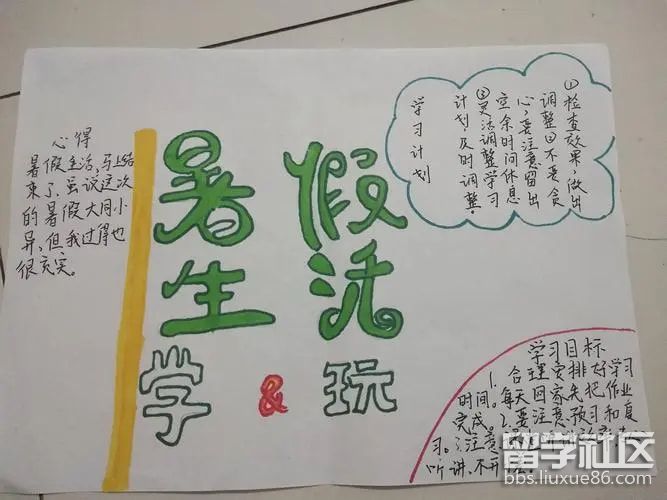 心得
暑假生活,马上结
束了,虽说这次
的暑假大同小
异,但我过得也
很充实。
暑假
生活
学&玩
学习计划
①检查效果,做出
调整②不要贪
心,要注意留出
空余时间休息
③灵活调整学习
计划,及时调整。
学习目标
1.合理安排好学习
时间。每天回家先把作业
完成。2.要注意预习和复
习。3.注意
听讲,不开
留学社区
bbs.liuxue86.com